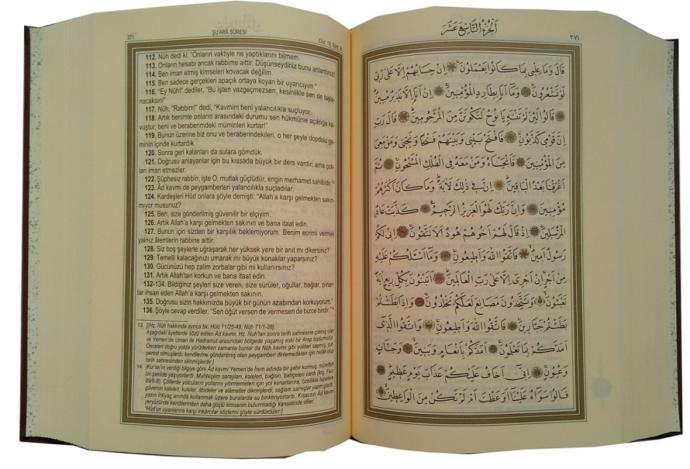 371
ŞU'ARÂ SÛRESİ
Cüz: 19, Sûre: 26
112. Nûh dedi ki: "Onların vaktiyle ne yaptıklarını bilmem.
113. Onların hesabı ancak rabbime aittir. Düşünseydiniz bunu anlardınız!
114. Ben iman etmiş kimseleri kovacak değilim.
115. Ben sadece gerçekleri apaçık ortaya koyan bir uyarıcıyım."
116. "Ey Nûh!" dediler, "Bu işten vazgeçmezsen, kesinlikle sen de taşla-
nacaksın!"
117. Nûh, "Rabbim!" dedi, "Kavmim beni yalancılıkla suçluyor.
118. Artık benimle onların arasındaki durumu sen hükmüne açıklığa ka-
vuştur, beni ve beraberimdeki müminleri kurtar!"
119. Bunun üzerine biz onu ve beraberindekileri, o her şeyle dopdolu ge-
minin içinde kurtardık.
120. Sonra geri kalanları da sulara gömdük.
121. Doğrusu anlayanlar için bu kıssada büyük bir ders vardır; ama çok-
ları iman etmezler.
122. Şüphesiz rabbin, işte O, mutlak güçlüdür, engin merhamet sahibidir.
123. Âd kavmi de peygamberleri yalancılıkla suçladılar.
124. Kardeşleri Hûd onlara şöyle demişti: "Allah'a karşı gelmekten sakın-
mıyor musunuz?
125. Ben, size gönderilmiş güvenilir bir elçiyim.
126. Artık Allah'a karşı gelmekten sakının ve bana itaat edin.
127. Bunun için sizden bir karşılık beklemiyorum. Benim ecrimi vermek
yalnız âlemlerin rabbine aittir.
128. Siz boş şeylerle uğraşarak her yüksek yere bir anıt mı dikersiniz?
129. Temelli kalacağınızı umarak mı büyük konaklar yaparsınız?
130. Gücünüzü hep zalim zorbalar gibi mi kullanırsınız?
131. Artık Allah'tan korkun ve bana itaat edin.
132-134. Bildiğiniz şeyleri size veren, size sürüler, oğullar, bağlar, pınar-
lar ihsan eden Allah'a karşı gelmekten sakının.
135. Doğrusu sizin hakkınızda büyük bir günün azabından korkuyorum."
136. Şöyle cevap verdiler: "Sen öğüt versen de vermesen de bizce birdir."
الجزء التاسع عشر
٣٧١
قَالَ وَمَا عِلْمِي بِمَا كَانُوا يَعْمَلُونَ إِنْ حِسَابُهُمْ إِلَّا عَلَى رَبِّي
لَوْ تَشْعُرُونَ وَمَا أَنَا بِطَارِدِ الْمُؤْمِنِينَ إِنْ أَنَا إِلَّا نَذِيرٌ مُبِينٌ
قَالُوا لَئِنْ لَمْ تَنْتَهِ يَا نُوحُ لَتَكُونَنَّ مِنَ الْمَرْجُومِينَ قَالَ رَبِّ
إِنَّ قَوْمِي كَذَّبُونِ فَافْتَحْ بَيْنِي وَبَيْنَهُمْ فَتْحًا وَنَجِّنِي وَمَنْ مَعِيَ
مِنَ الْمُؤْمِنِينَ فَأَنْجَيْنَاهُ وَمَنْ مَعَهُ فِي الْفُلْكِ الْمَشْحُونِ ثُمَّ
أَغْرَقْنَا بَعْدُ الْبَاقِينَ إِنَّ فِي ذَلِكَ لَآيَةً وَمَا كَانَ أَكْثَرُهُمْ
مُؤْمِنِينَ وَإِنَّ رَبَّكَ لَهُوَ الْعَزِيزُ الرَّحِيمُ كَذَّبَتْ عَادٌ
الْمُرْسَلِينَ إِذْ قَالَ لَهُمْ أَخُوهُمْ هُودٌ أَلَا تَتَّقُونَ إِنِّي لَكُمْ
رَسُولٌ أَمِينٌ فَاتَّقُوا اللَّهَ وَأَطِيعُونِ وَمَا أَسْأَلُكُمْ عَلَيْهِ
مِنْ أَجْرٍ إِنْ أَجْرِيَ إِلَّا عَلَى رَبِّ الْعَالَمِينَ أَتَبْنُونَ بِكُلِّ رِيعٍ آيَةً
تَعْبَثُونَ وَتَتَّخِذُونَ مَصَانِعَ لَعَلَّكُمْ تَخْلُدُونَ وَإِذَا بَطَشْتُمْ
بَطَشْتُمْ جَبَّارِينَ فَاتَّقُوا اللَّهَ وَأَطِيعُونِ وَاتَّقُوا الَّذِي
أَمَدَّكُمْ بِمَا تَعْلَمُونَ أَمَدَّكُمْ بِأَنْعَامٍ وَبَنِينَ وَجَنَّاتٍ
وَعُيُونٍ إِنِّي أَخَافُ عَلَيْكُمْ عَذَابَ يَوْمٍ عَظِيمٍ
قَالُوا سَوَاءٌ عَلَيْنَا أَوَعَظْتَ أَمْ لَمْ تَكُنْ مِنَ الْوَاعِظِينَ